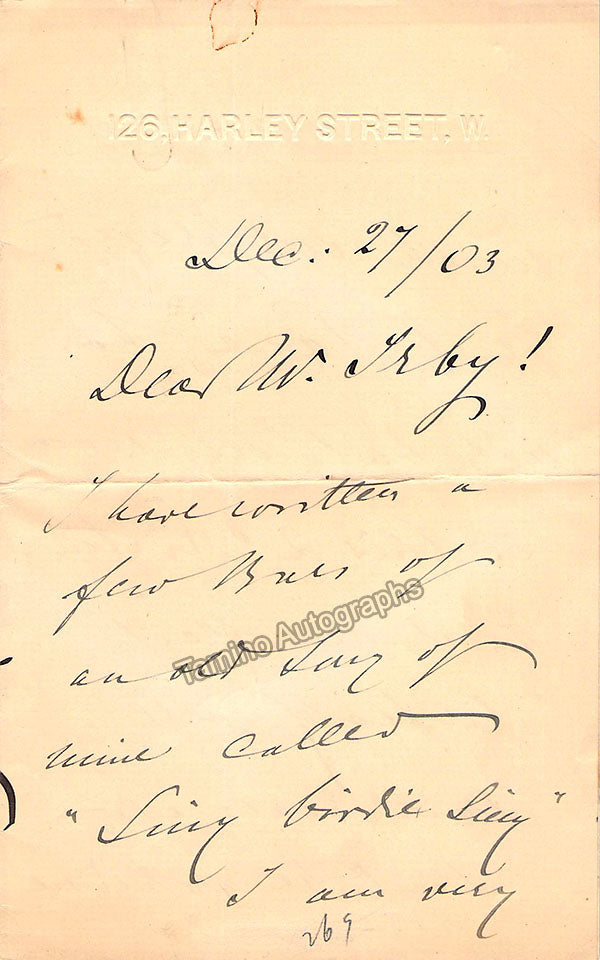 126, HARLEY STREET, W.
Dec: 27/03
Dear W. Irby!
I have written a
few Bars of
an old Song of
mine called
"Sing birdie Sing"
I am very
269
Tamino Autographs